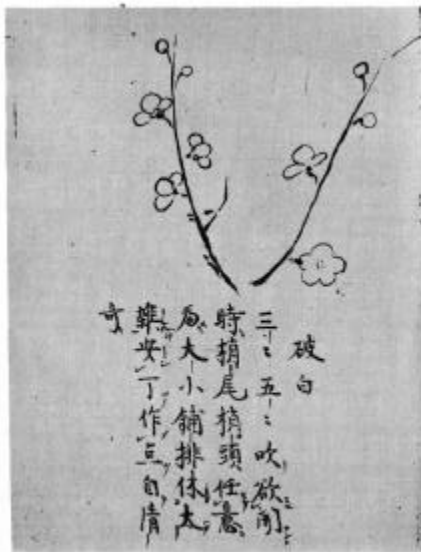 破白
三〻五〻吹欲開
時梢尾梢頭任意
為大小鋪排休太
雜安丁作点自清
奇